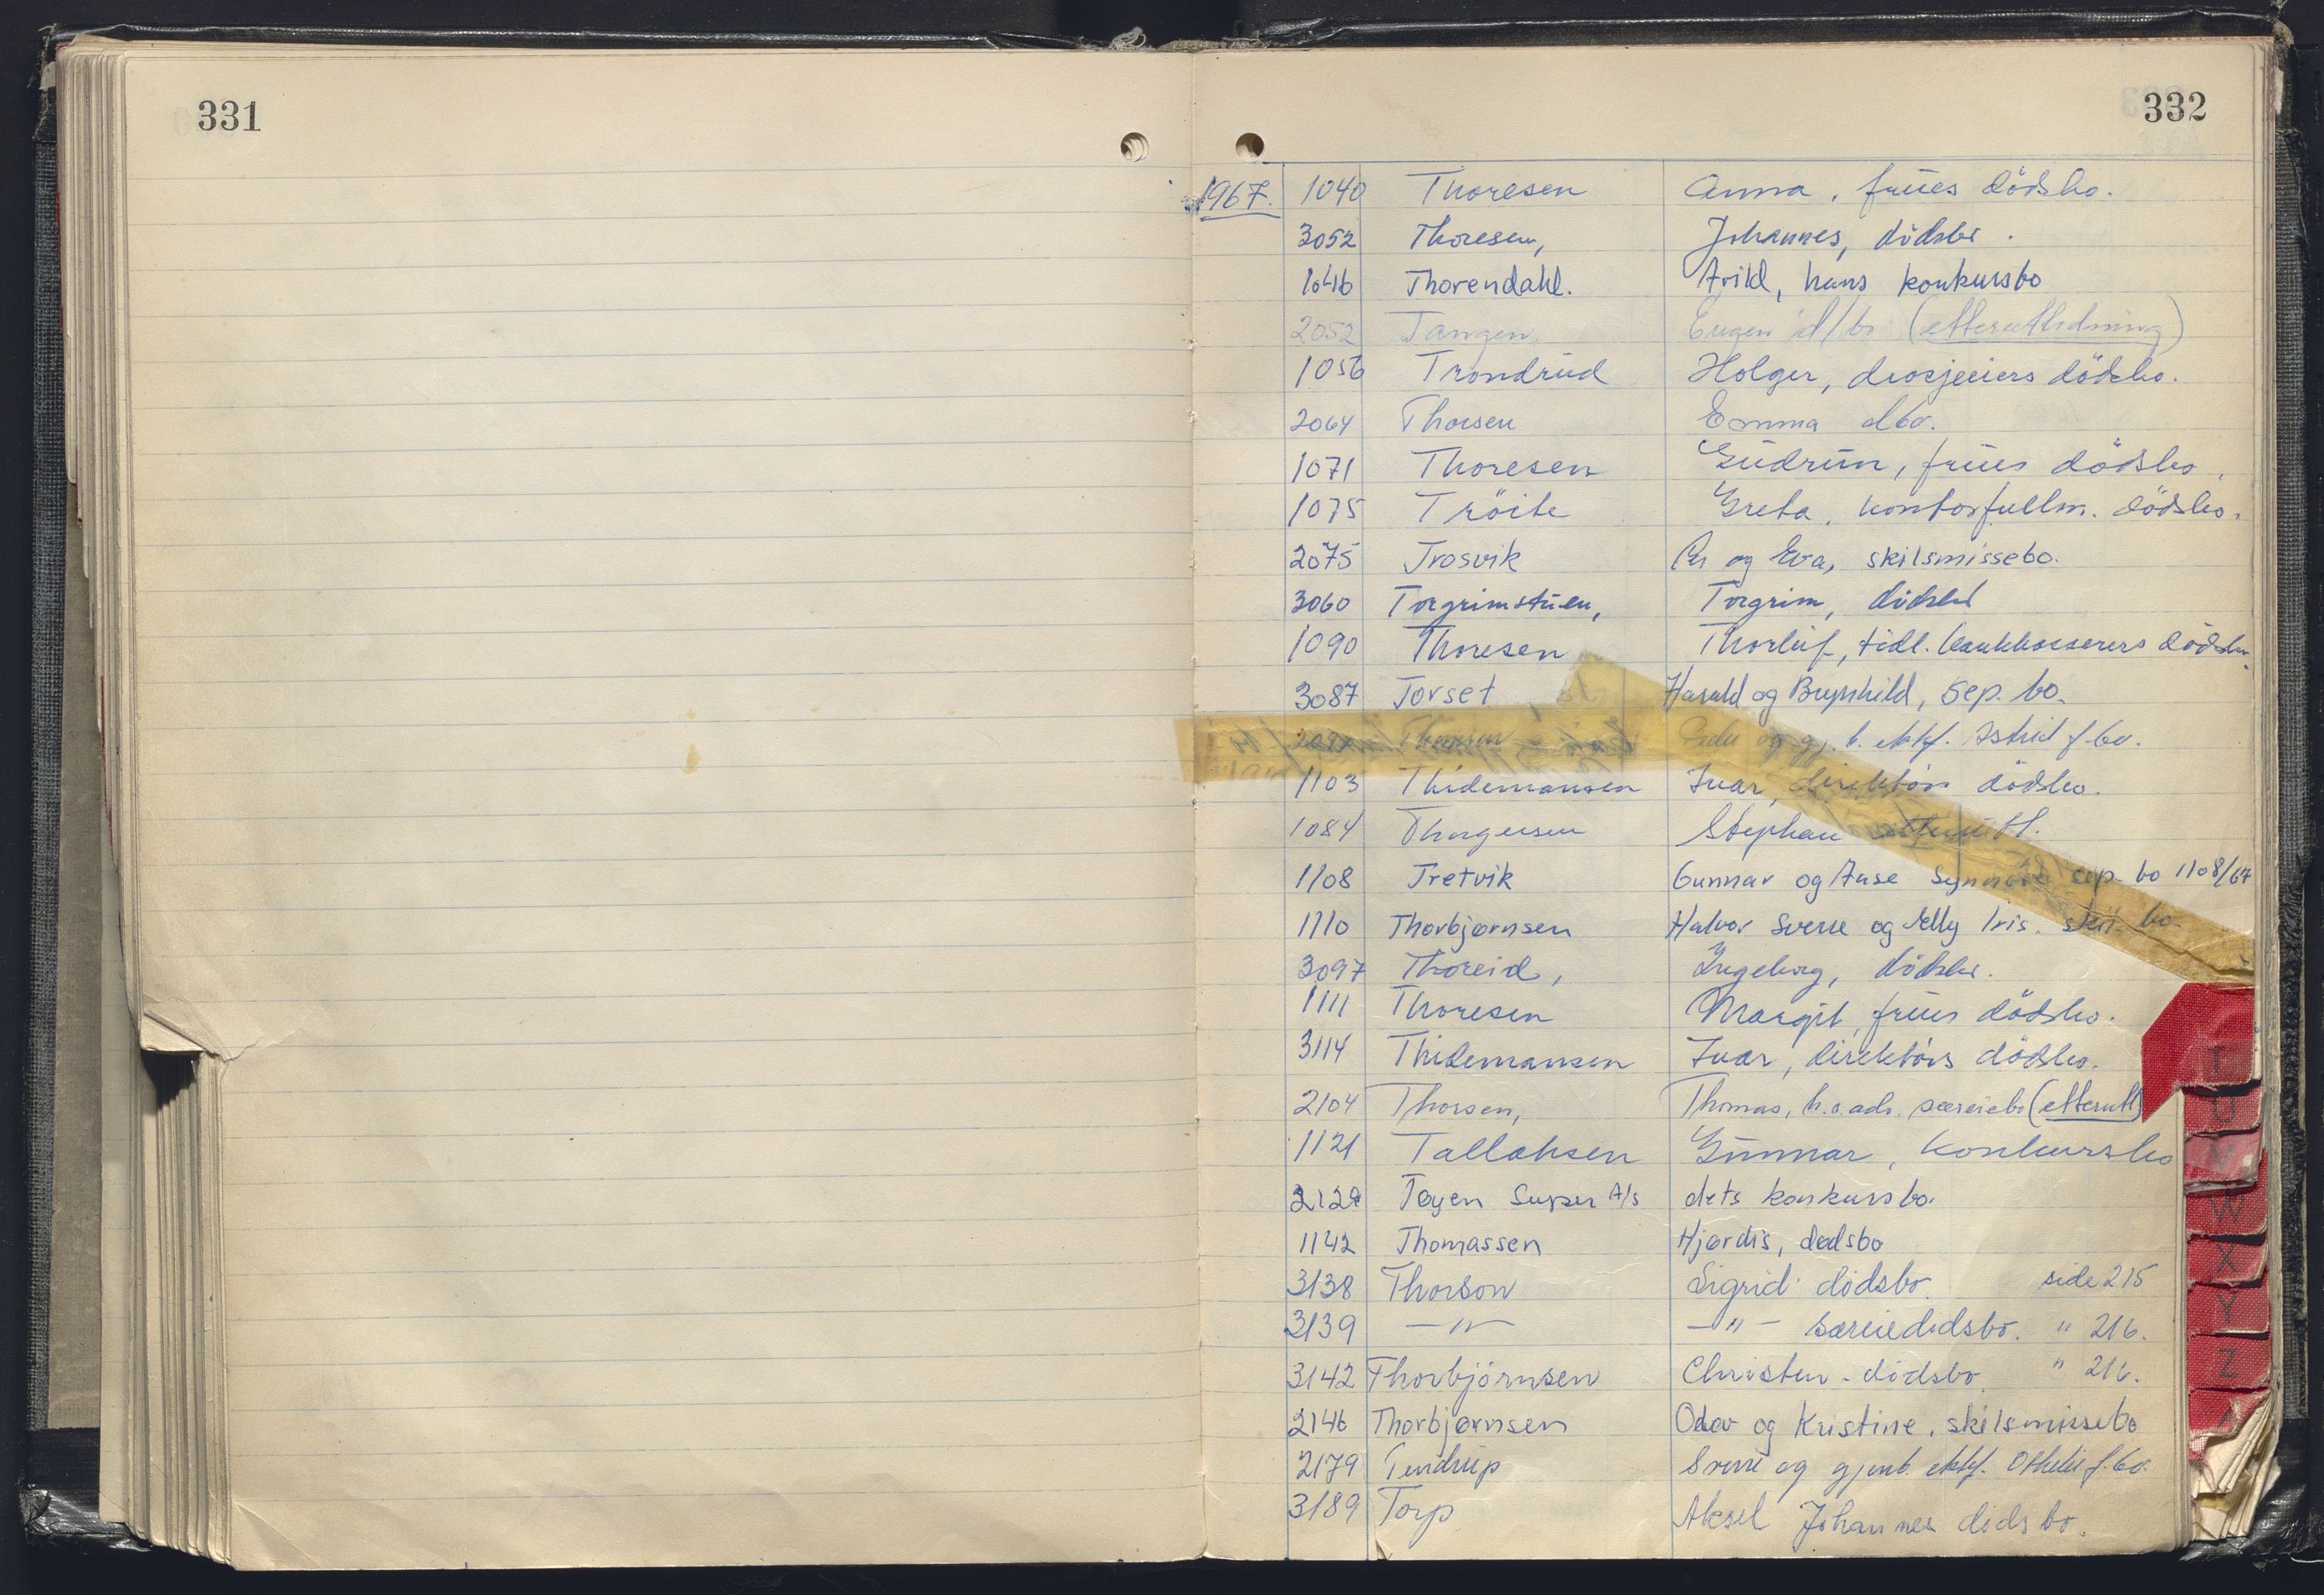 331
332
1967. 1040 Thoresen Anna, frues dödsbo.
3052 Thoresen, Johannes, dödsbo.
1046 Thorendahl. Arild, hans konkursbo
2052 Tangen Eugen d/bo (etterutlodning)
1056 Trondrud Holger, drosjeeiers dödsbo.
2064 Thorsen Emma dbo.
1071 Thoresen Gudrun, frues dödsbo.
1075 Tröite Greta, kontorfullm. dödsbo.
2075 Trosvik Per og Eva, skilsmissebo.
3060 Torgrimstuen, Torgrim, dödsbo
1090 Thoresen Thorleif, tidl. bankkasserers dödsbo.
3087 Torset Harald og Brynhild, sep. bo.
og gj. b. ektf. Astrid f.bo.
1103 Thidemansen Ivar, direktörs dödsbo.
1084 Thorgersen Stephan H.
1108 Tretvik Gunnar og Aase Synnöve sep. bo 1108/67
1110 Thorbjørnsen Halvor Sverre og Nelly Iris. skil. bo.
3097 Thoreid, Ingeborg, dödsbo.
1111 Thoresen Margit, frues dödsbo.
3114 Thidemansen Ivar, direktörs dödsbo.
2104 Thorsen, Thomas, h.r.adv. særeiebo (etterutl)
1121 Tallaksen Gunnar, konkursbo
2129 Tøyen Super A/s dets konkursbo.
1142 Thomassen Hjørdis, dødsbo
3138 Thorson Sigrid dödsbo. side 215
3139 —"— —"— særeiedödsbo. " 216.
3142 Thorbjörnsen Christen - dödsbo. " 216.
2146 Thorbjørnsen Odav og Kristine, skilsmissebo
2179 Tendrup Sverre og gjenl. ektf. Othelie f.bo.
3189 Torp Aksel Johannes dödsbo.
T
U
V
W
X
Y
Z